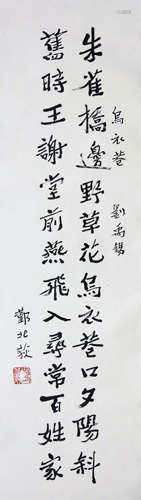 烏衣巷 劉禹錫
朱雀橋邊野草花烏衣巷口夕陽斜
舊時王謝堂前燕飛入尋常百姓家
鄧北荻